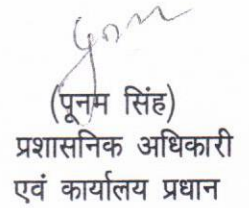 (पूनम सिंह)
प्रशासनिक अधिकारी
एवं कार्यालय प्रधान